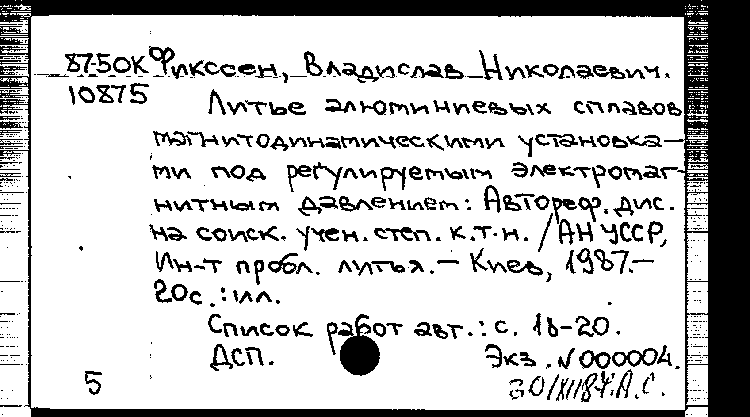 87-50К Фикссен, Владислав Николаевич.
10875 Литье алюминиевых сплавов
магнитодинамическими установка-
ми под регулируемым электромаг-
нитным давлением: Автореф. дис.
на соиск. учен. степ. к.т.н. / АН УССР,
Ин-т пробл. литья. – Киев, 1987.–
20с. : ил.
Список работ авт.: с. 18-20.
ДСП. Экз. N 000004.
5 А.С.